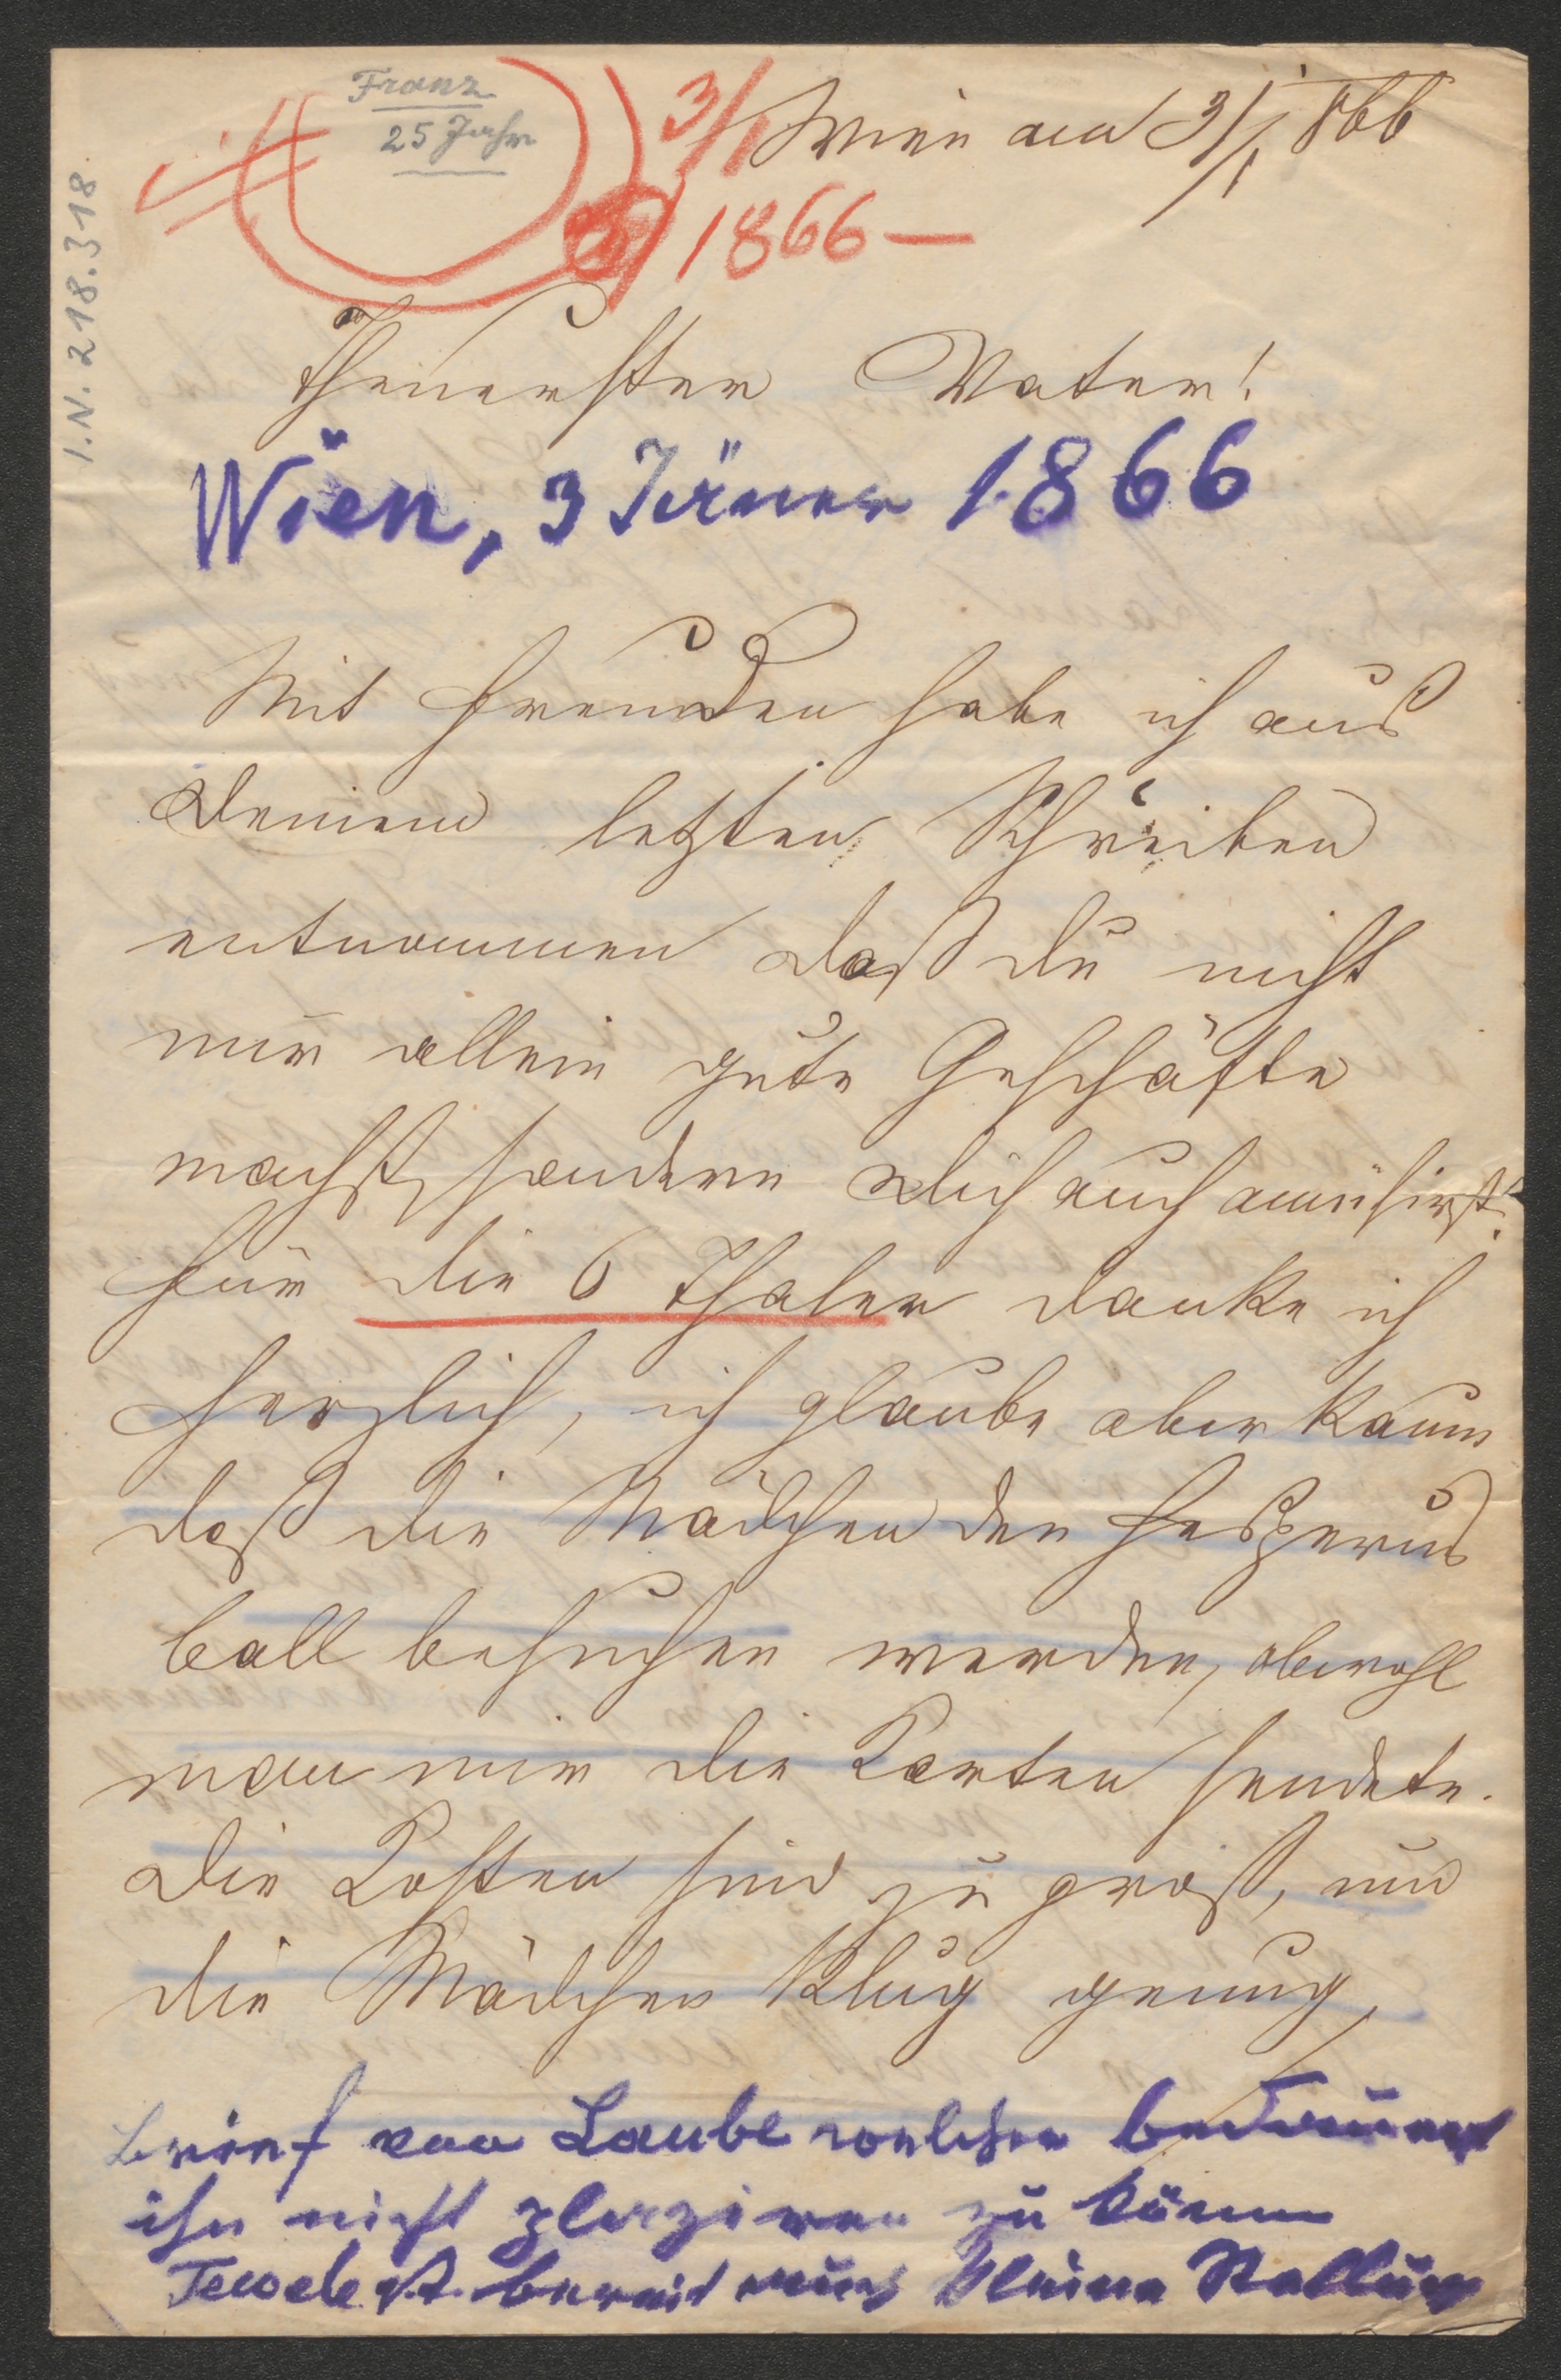 Franz
25 Jahr
I.N. 218.318.
3/1
1866 —
Wien am 3/1 866
Theuerster Vater!
Wien, 3 Jänner 1866
Mit Freuden habe ich aus
Deinem letzten Schreiben
entnommen daß du nicht
nur allein gute Geschäfte
machst, sondern Dich auch amüsirst.
Für die 6 Thaler danke ich
herzlich, ich glaube aber kaum
daß die Mädchen den Heßperus
ball besuchen werden, obwohl
man mir die Karten sendete.
Die Kosten sind zu groß, und
die Mädchen klug genug,
Brief von Laube welcher bedauert
ihn nicht plazieren zu können
bereit auch kleine Stellung